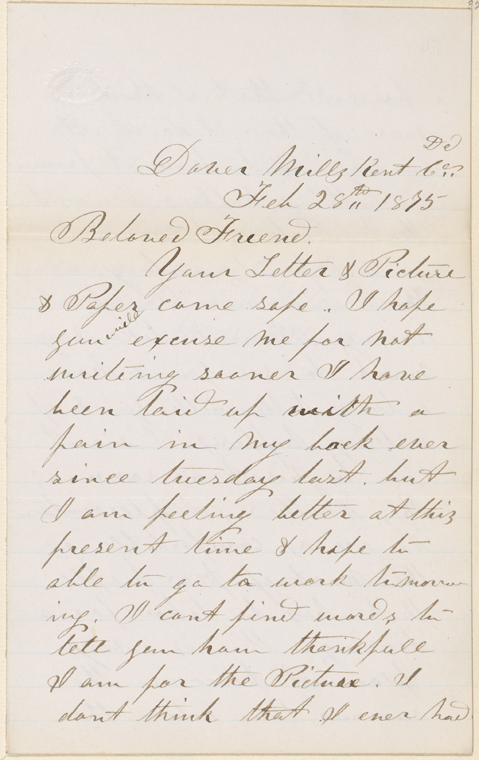 Del
Dover Mills Kent Co..
Feb 28th 1875
Beloved Friend.
Your Letter & Picture
& Paper come safe.. I hope
you will excuse me for not
writing sooner I have
been laid up with a
pain in my back ever
since tuesday last. but
I am feeling better at this
present time & hope to
able to go to work tomorrow
ing. I cant find words to
tell you how thankfull
I am for the Picture. I
dont think that I ever had